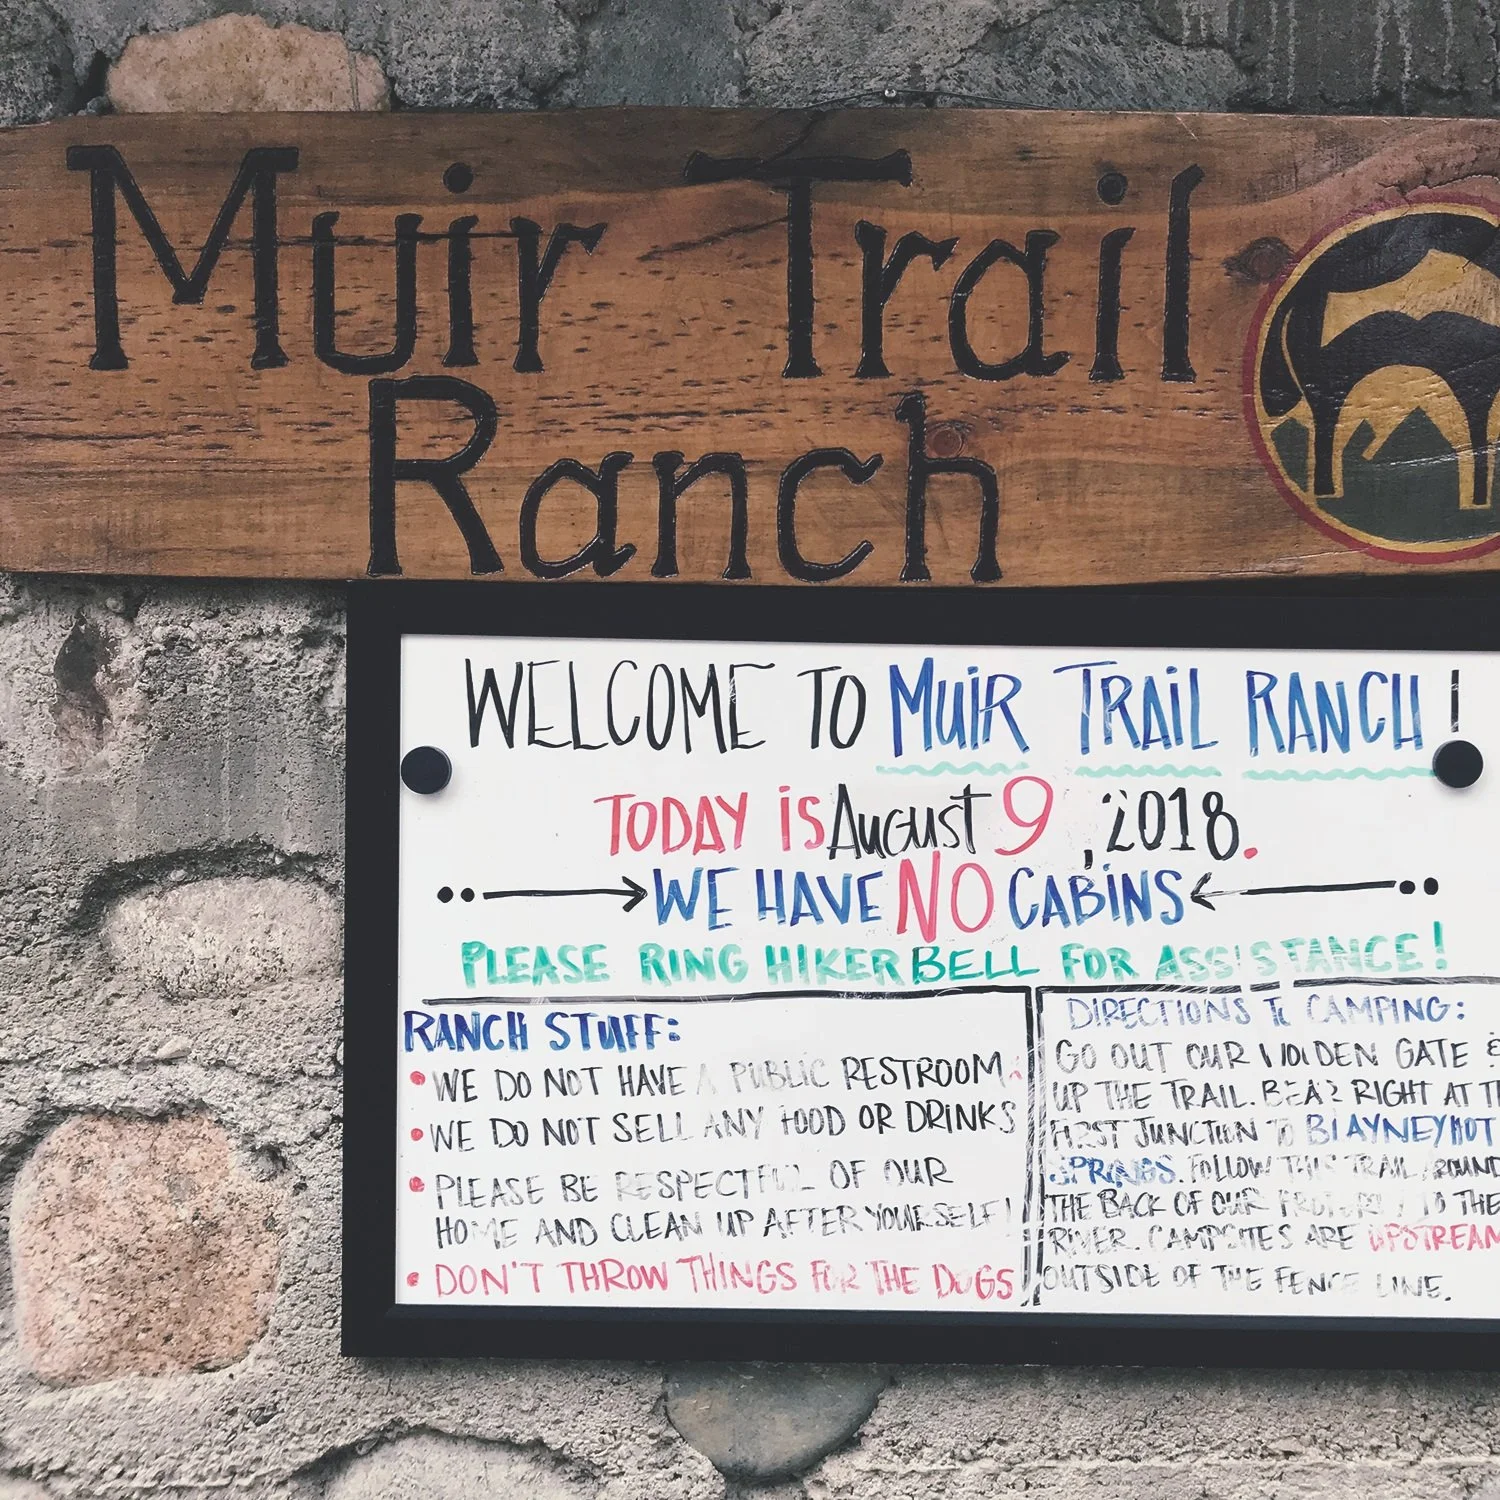 Muir Trail
Ranch
WELCOME TO MUIR TRAIL RANCH!
TODAY IS AUGUST 9, 2018.
WE HAVE NO CABINS
PLEASE RING HIKER BELL FOR ASSISTANCE!
RANCH STUFF:
• WE DO NOT HAVE A PUBLIC RESTROOM
• WE DO NOT SELL ANY FOOD OR DRINKS
• PLEASE BE RESPECTFUL OF OUR
HOME AND CLEAN UP AFTER YOURSELF!
• DON'T THROW THINGS FOR THE DOGS
DIRECTIONS TO CAMPING:
GO OUT OUR WOODEN GATE &
UP THE TRAIL. BEAR RIGHT AT TH
FIRST JUNCTION TO BLAYNEY HOT
SPRINGS. FOLLOW THIS TRAIL AROUND
THE BACK OF OUR PROPERTY TO THE
RIVER. CAMPSITES ARE UPSTREAM
OUTSIDE OF THE FENCE LINE.